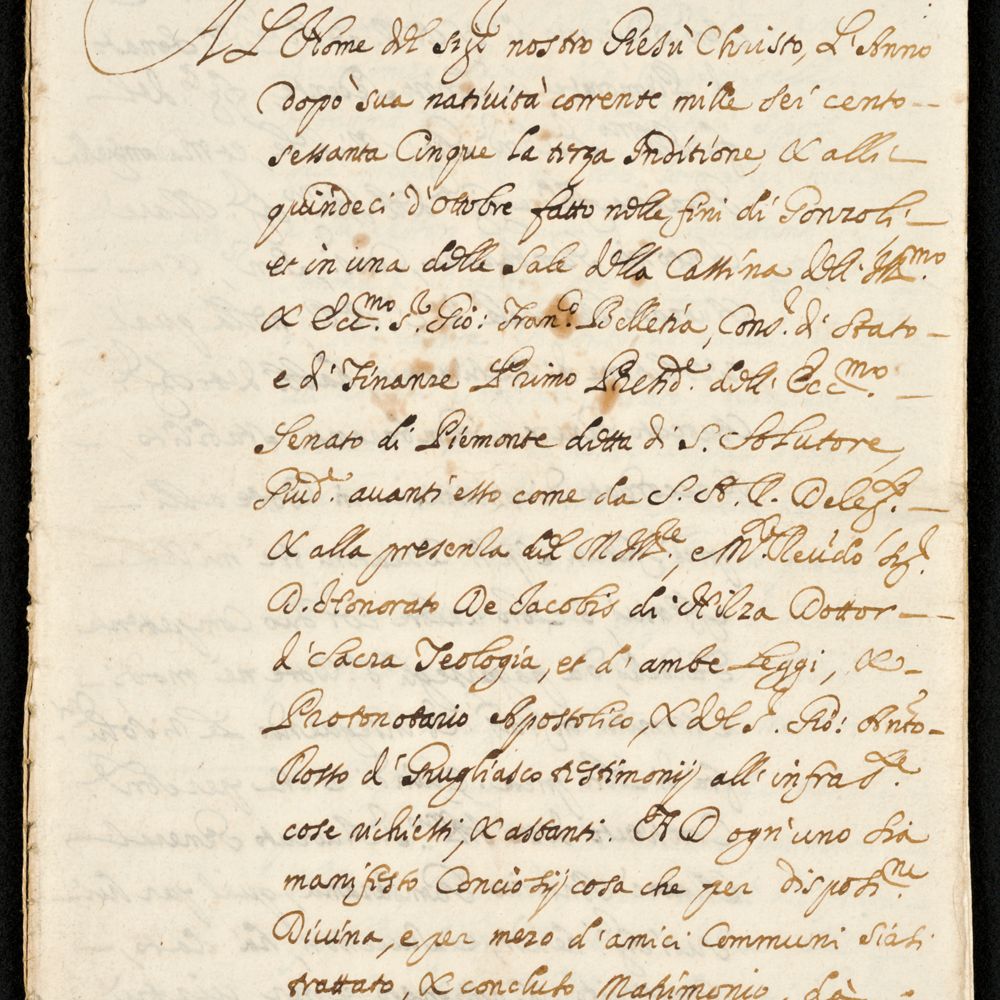 AL Nome del sigr nostro Giesù Christo, L'Anno
dopò sua natività corrente mille sei cento--
sessanta Cinque la terza Inditione, & alli
quindeci d'ottobre fatto nelle fini di Gonzoli
et in una delle Sale della Cassina dell' Illmo.
& Eccmo. Sr. Gio: Franco. Belletia, Consr. di Stato
e di Finanze Primo Presidte. dell' Eccmo.
Senato di Piemonte detta di S. Solutore,
Giudce. avanti esso come da S. A. R. Deleg.
& alla presenza del M Illre, e Mto. Revdo Sigr.
D. Honorato De Jacobis di Nizza Dottor
di Sacra Teologia, et d'ambe Leggi, &
Protonotario Apostolico, & del Sr. Gio: Anto
Rosso di Grugliasco testimonij alle infrate
cose richiesti, & assonti. AD ogn'uno sia
manifesto Conciosij cosa che per dispositne
Divina, e per mezo d'amici Communi siasi
trattato, & concluso Matrimonio, dà